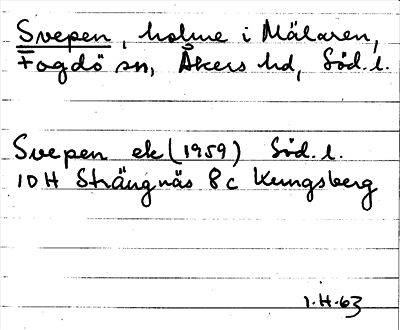 Svepen, holme i Mälaren,
Fogdö sn, Åkers hd, Söd. l.
Svepen ek (1959) Söd. l.
10H Strängnäs 8c Kungsberg
1.H.63